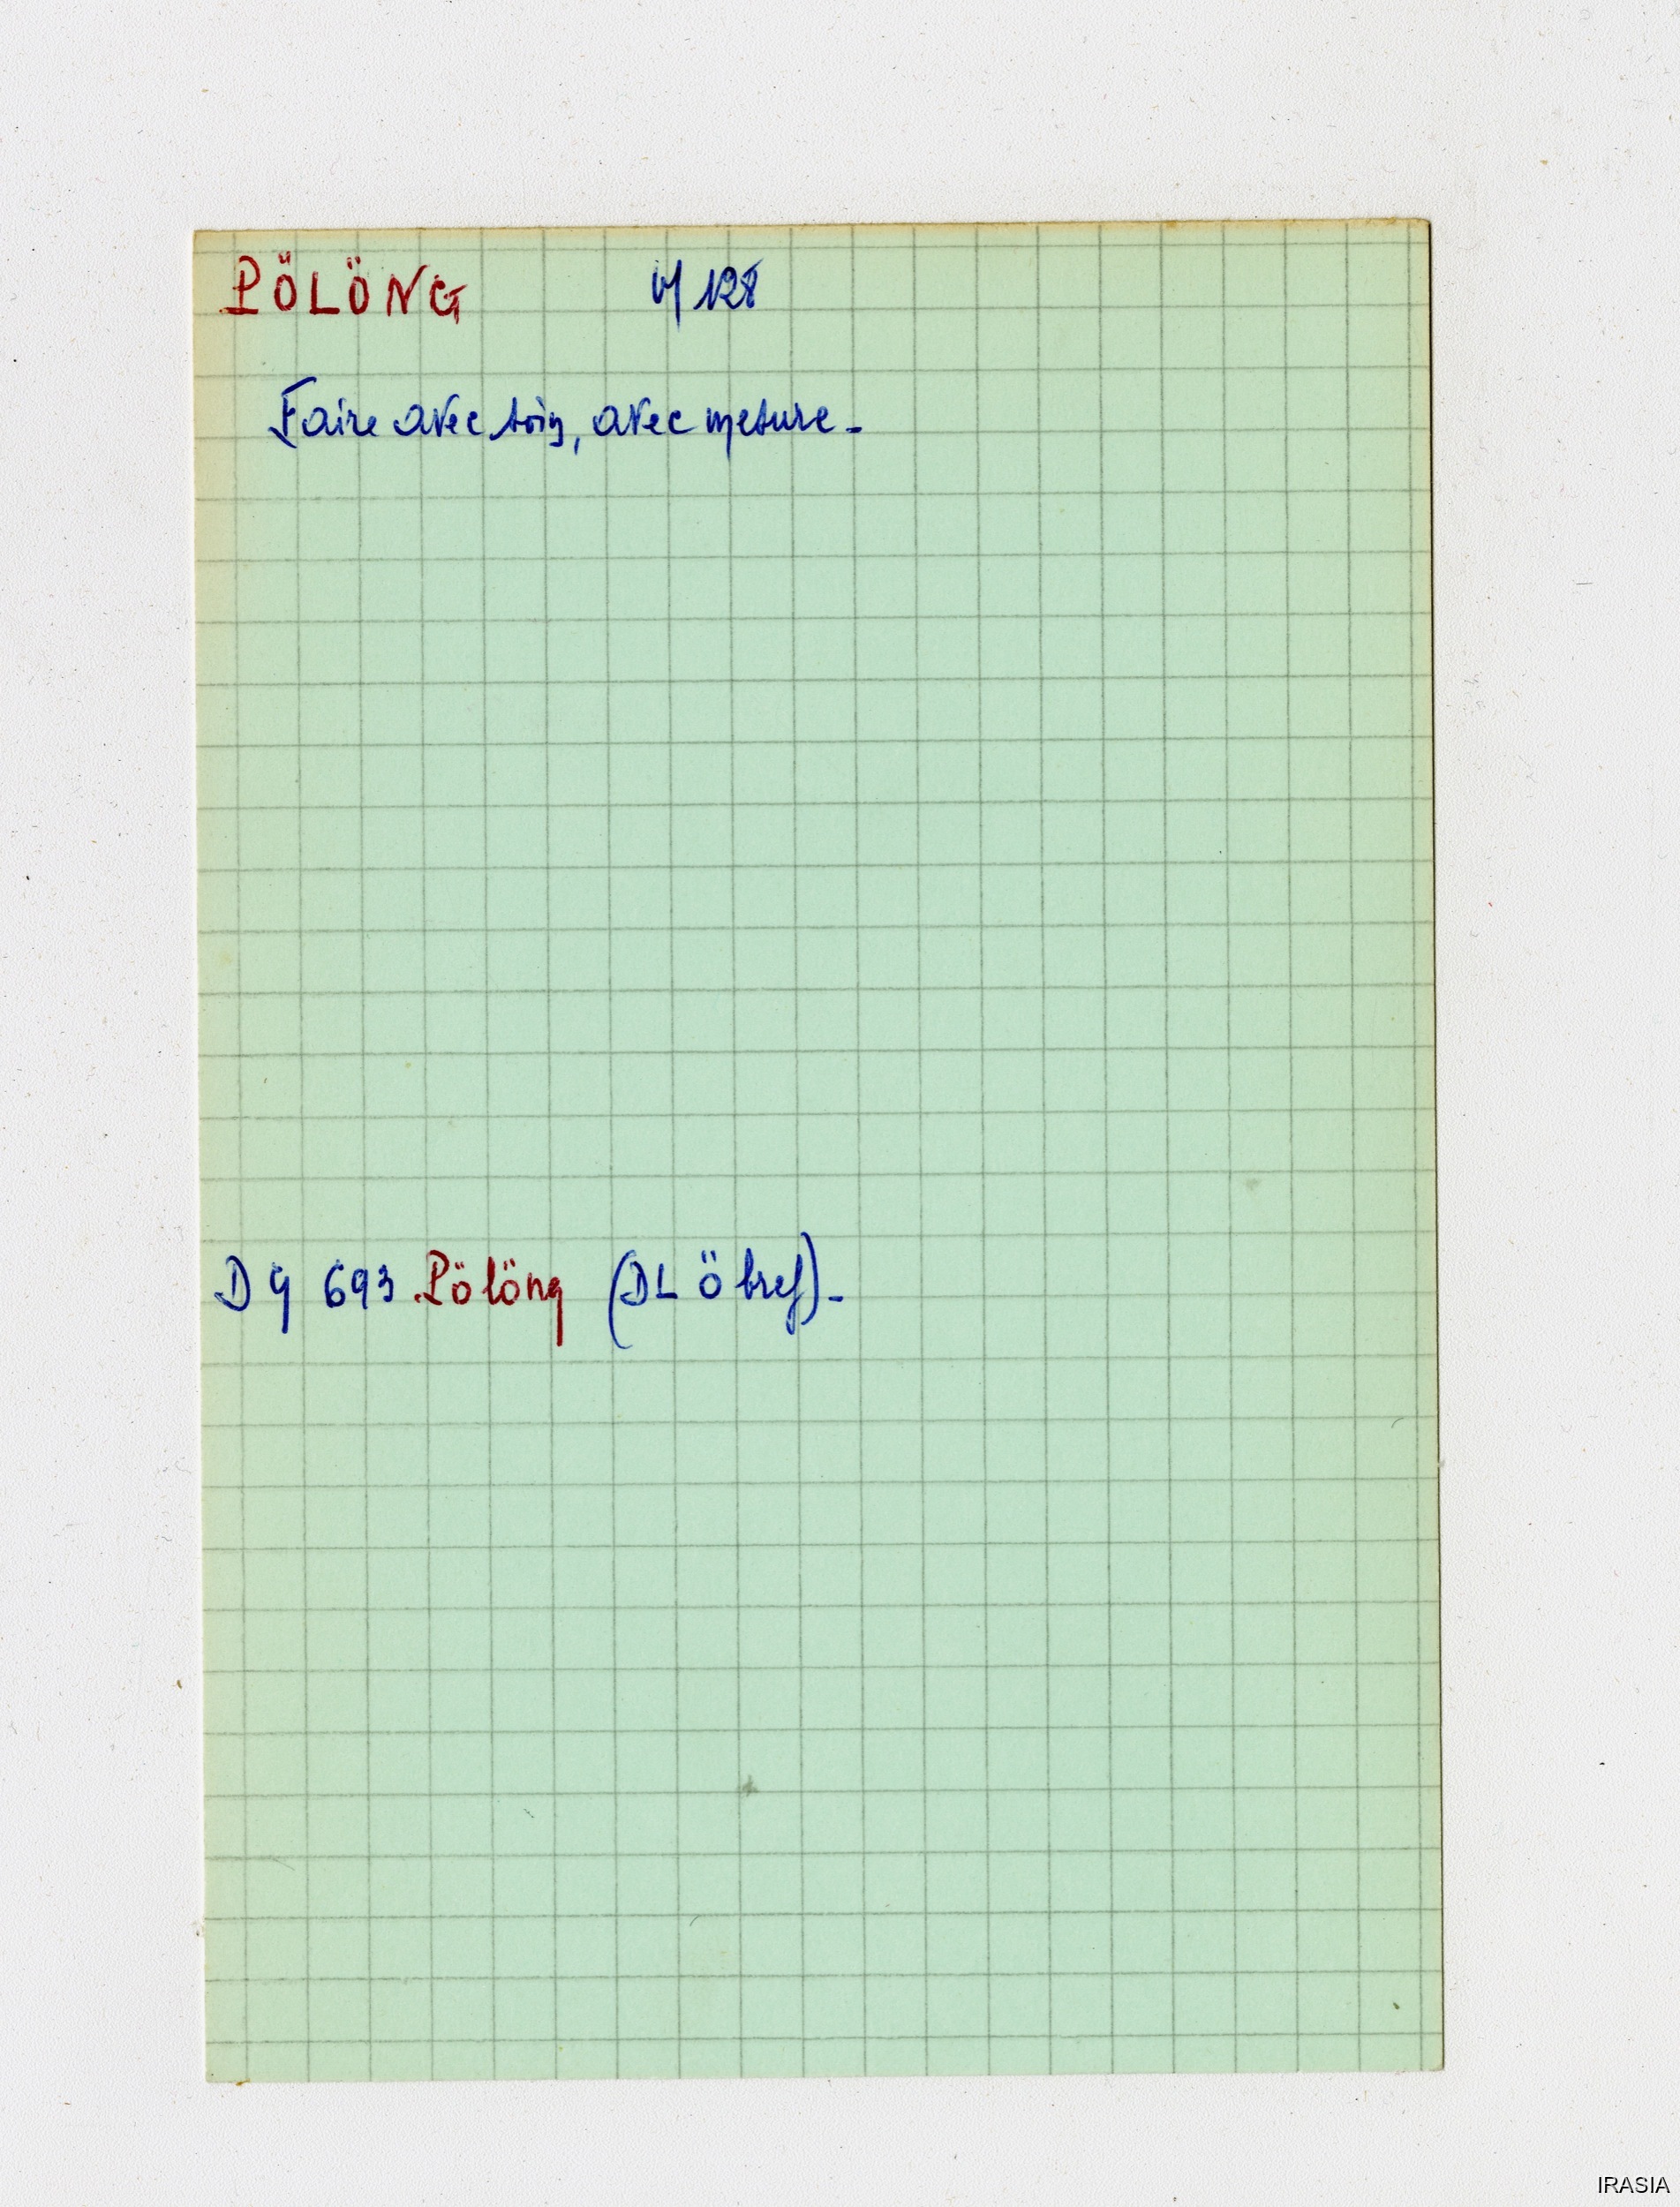 PÖLÖNG VI 128
Faire avec soin, avec mesure -
D 9 693 Pölöng (DL Ö bref) -
IRASIA